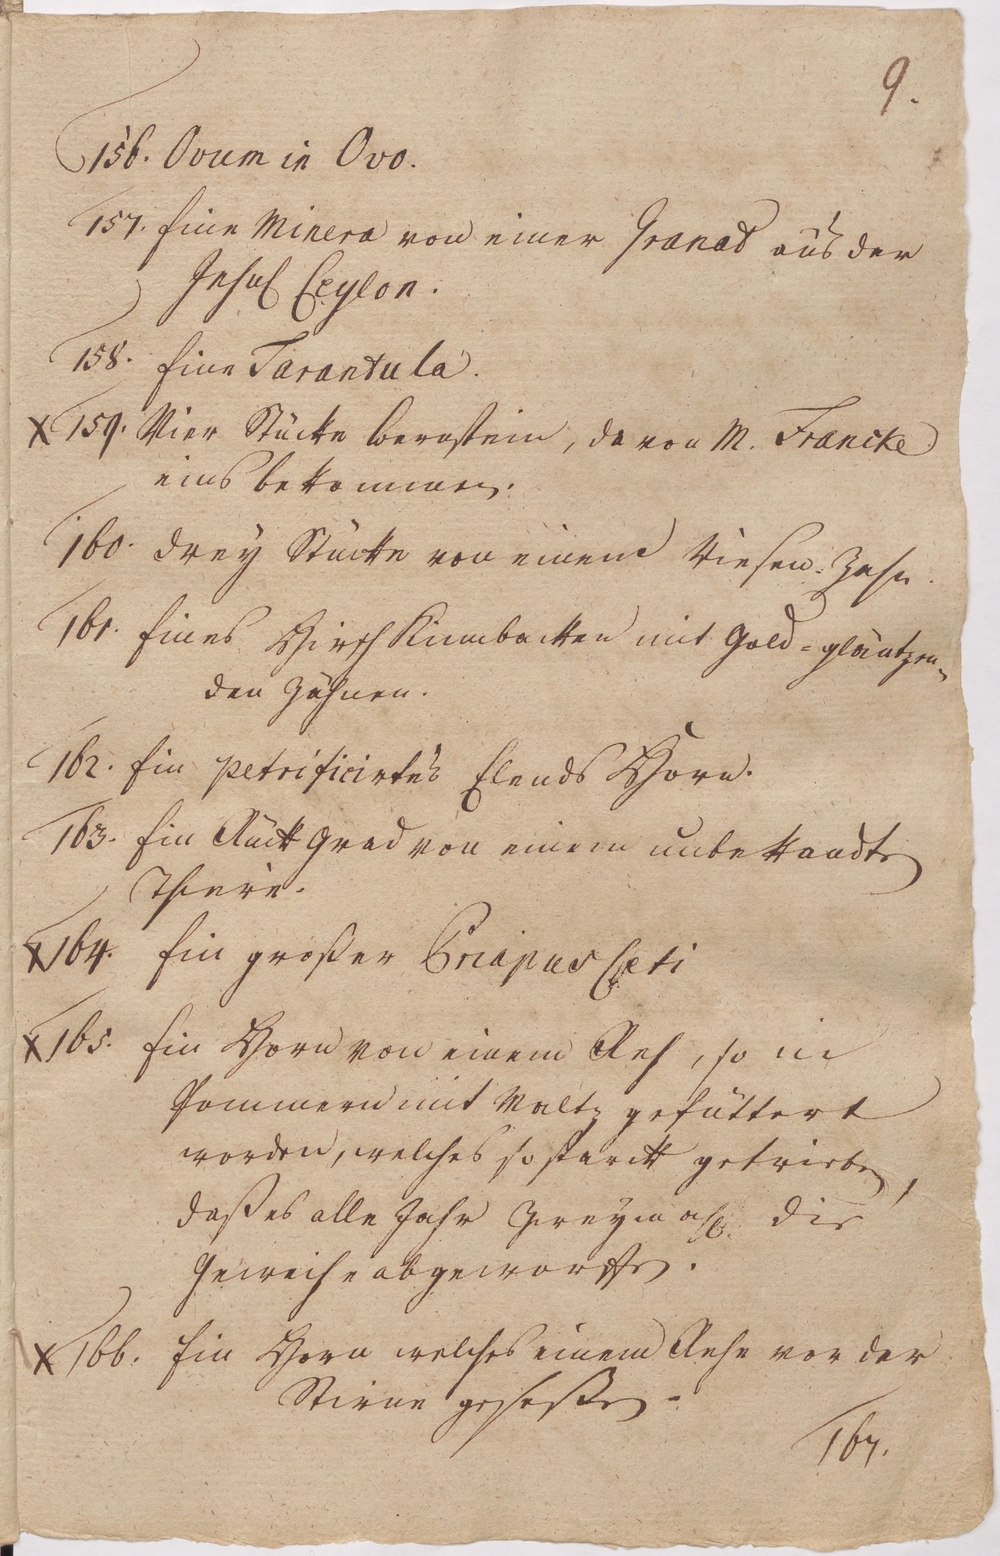 9.
156. Ovum in Ovo.
157. Eine Minera von einer Granat aus der
Insul Ceylon.
158. Eine Tarantula.
X 159. Vier Stücke Bernstein, davon M. Francke
eins bekommen.
160. drey Stücke von einem Riesen-Zahn.
161. Eines Hirsch Kinnbacken mit Gold-gläntzen-
den Zähnen.
162. Ein petrificirtes Elends Horn.
163. Ein Rückgrad von einem unbekandten
Thiere.
X 164. Ein großer Priapus Ceti
X 165. Ein Horn von einem Reh, so in
Pommern mit Maltz gefüttert
worden, welches so starck getrieben,
daß es alle Jahr Dreymahl die
Geweihe abgeworffen.
X 166. Ein Horn welches einem Rehe vor der
Stirne geseßen.
167.